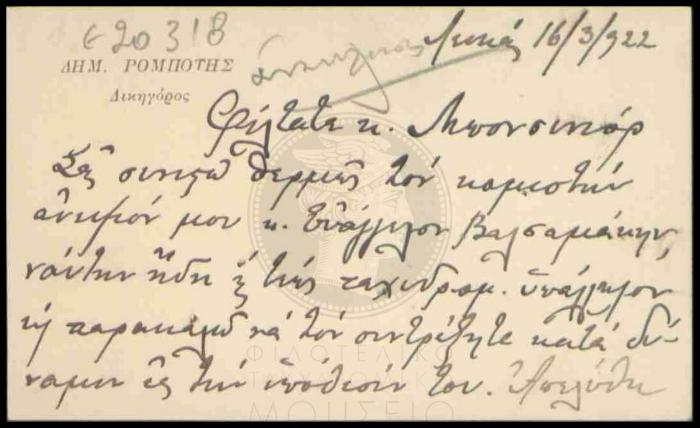 ε20318
ΔΗΜ. ΡΟΜΠΟΤΗΣ
Δικηγόρος
16/3/922
Φίλτατε κ. Μπονσινιόρ
Σᾶς συνιστῶ θερμῶς τὸν κομιστὴν
ἀνεψιόν μου κ. Εὐάγγελον Βαλσαμάκην
ναύτην ἤδη ἐξ τῆς ταχυδρομ. ὑπάλληλον
κὴ παρακαλῶ νὰ τὸν συντρέξητε κατὰ δύ-
ναμιν εἰς τὴν ὑπόθεσίν του.
ΦΙΛΟΤΕΛΙΚΟ
ΤΑΧΥΔΡΟΜΙΚΟ
ΜΟΥΣΕΙΟ